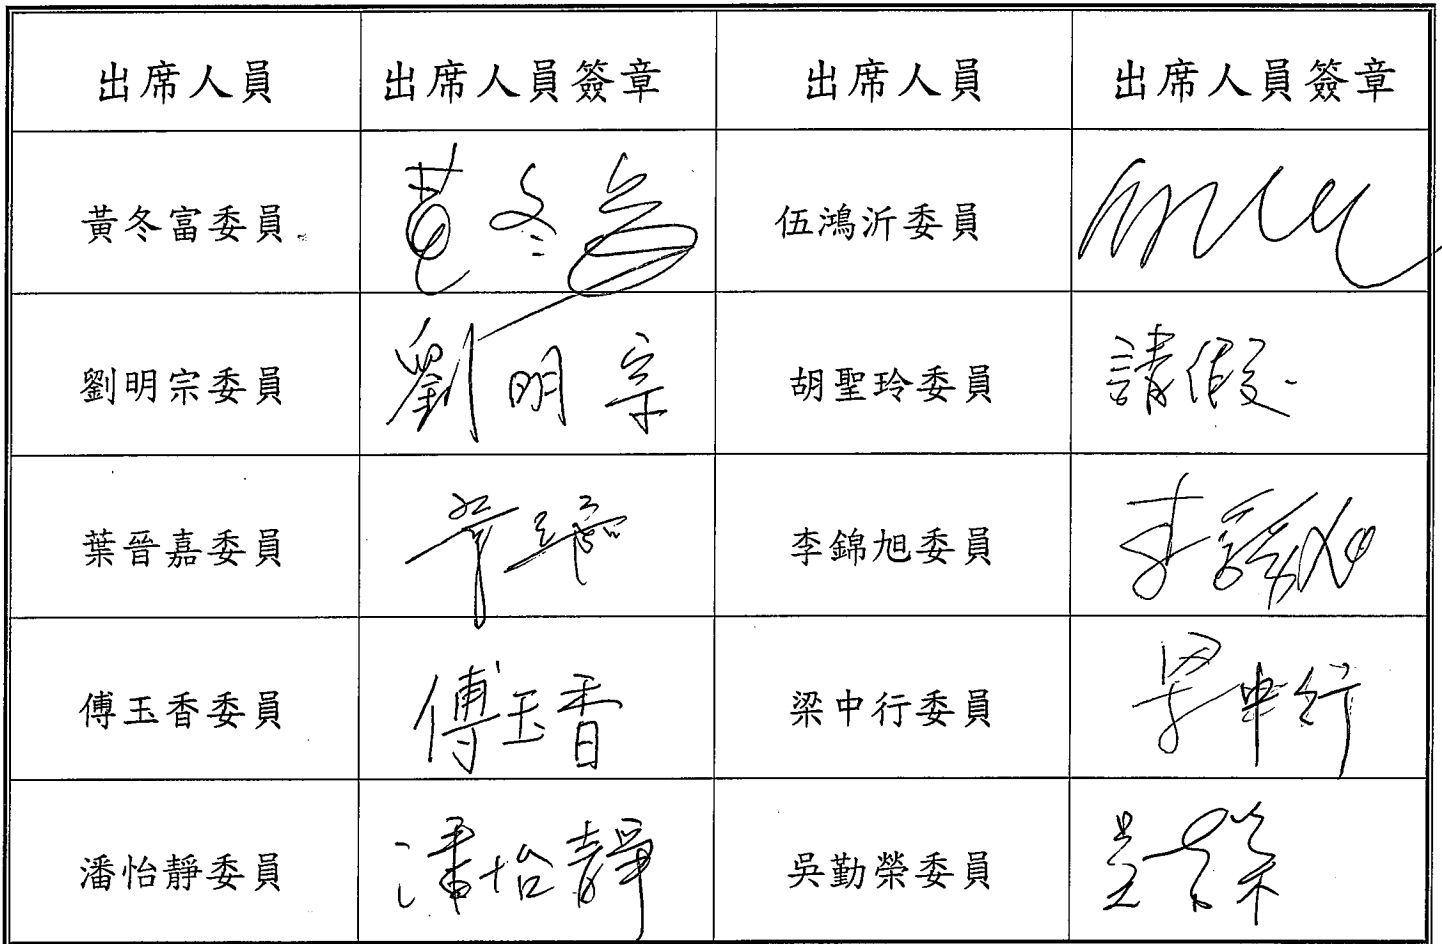 出席人員 出席人員簽章 出席人員 出席人員簽章
黃冬富委員 黃冬富 伍鴻沂委員
劉明宗委員 劉明宗 胡聖玲委員 請假
葉晉嘉委員 李錦旭委員 李錦旭
傅玉香委員 傅玉香 梁中行委員 梁中行
潘怡靜委員 潘怡靜 吳勤榮委員